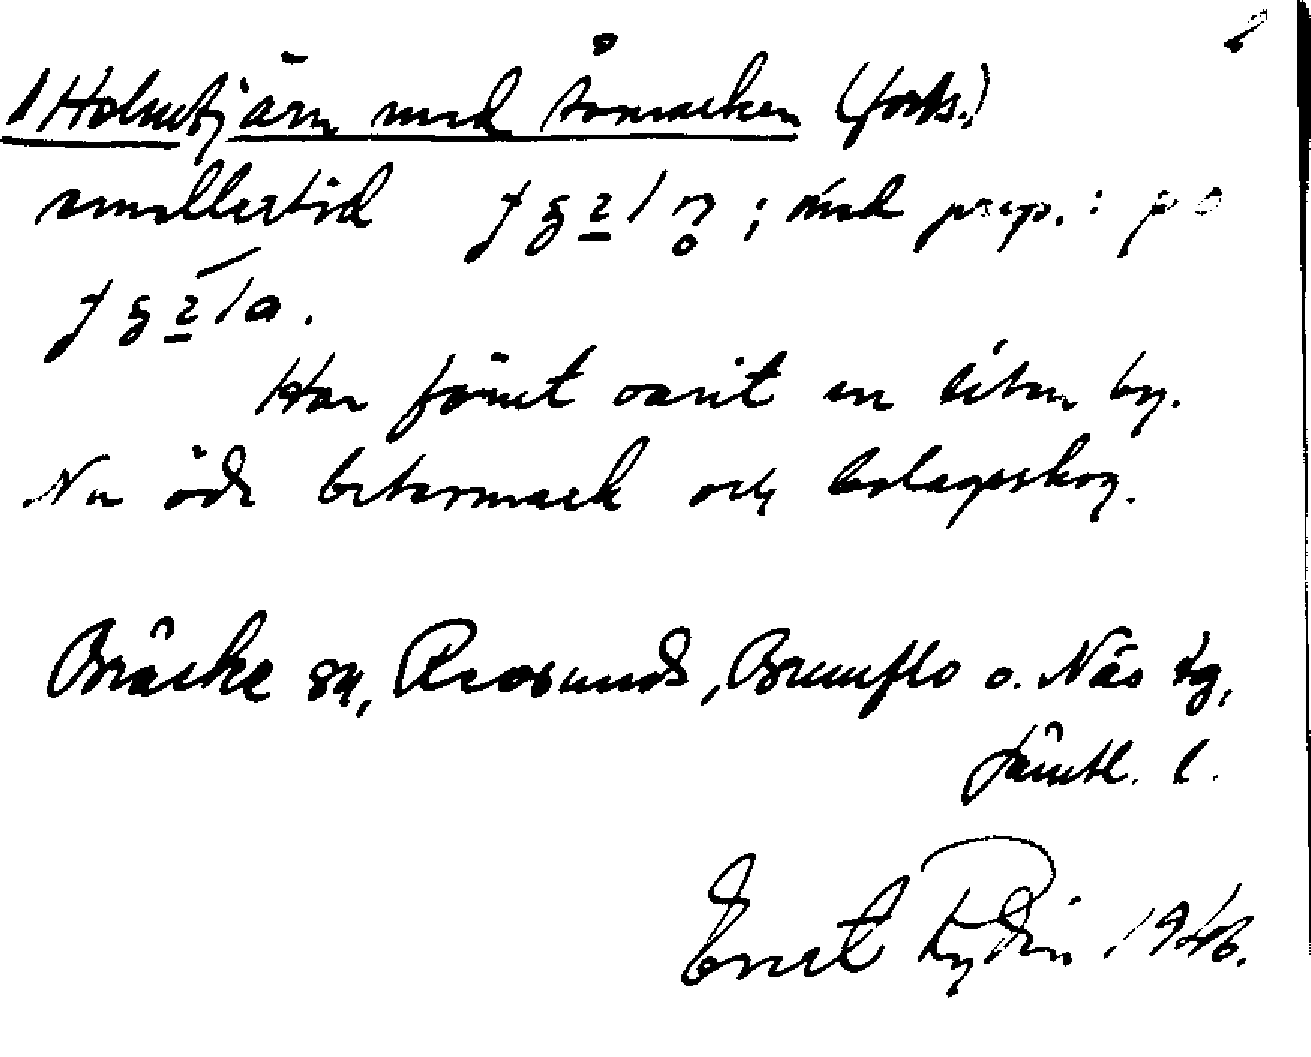 Holmtjärn med Åsmarken (forts.)
emellertid ; med prep.: på
Har förut varit en liten by.
Nu öde betesmark och bolagsskog.
Bräcke sn, Revsunds, Brunflo o. Näs tg,
Jämtl. l.
Ernst Rydin 1946.